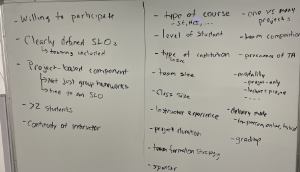 - Willing to participate
- Clearly defined SLOs
↳ teaming included
- Project-based component
↳ Not just group homeworks
↳ tree to an SLO
- >2 students
- Continuity of instructor
- type of course
- level of student
- type of institution
- team size
- class size
- instructor experience
- project duration
- team formation strategy
- sponsor
- one vs many
projects
- team composition
- presence of TA
- modality
- project-only
- delivery mode
- grading